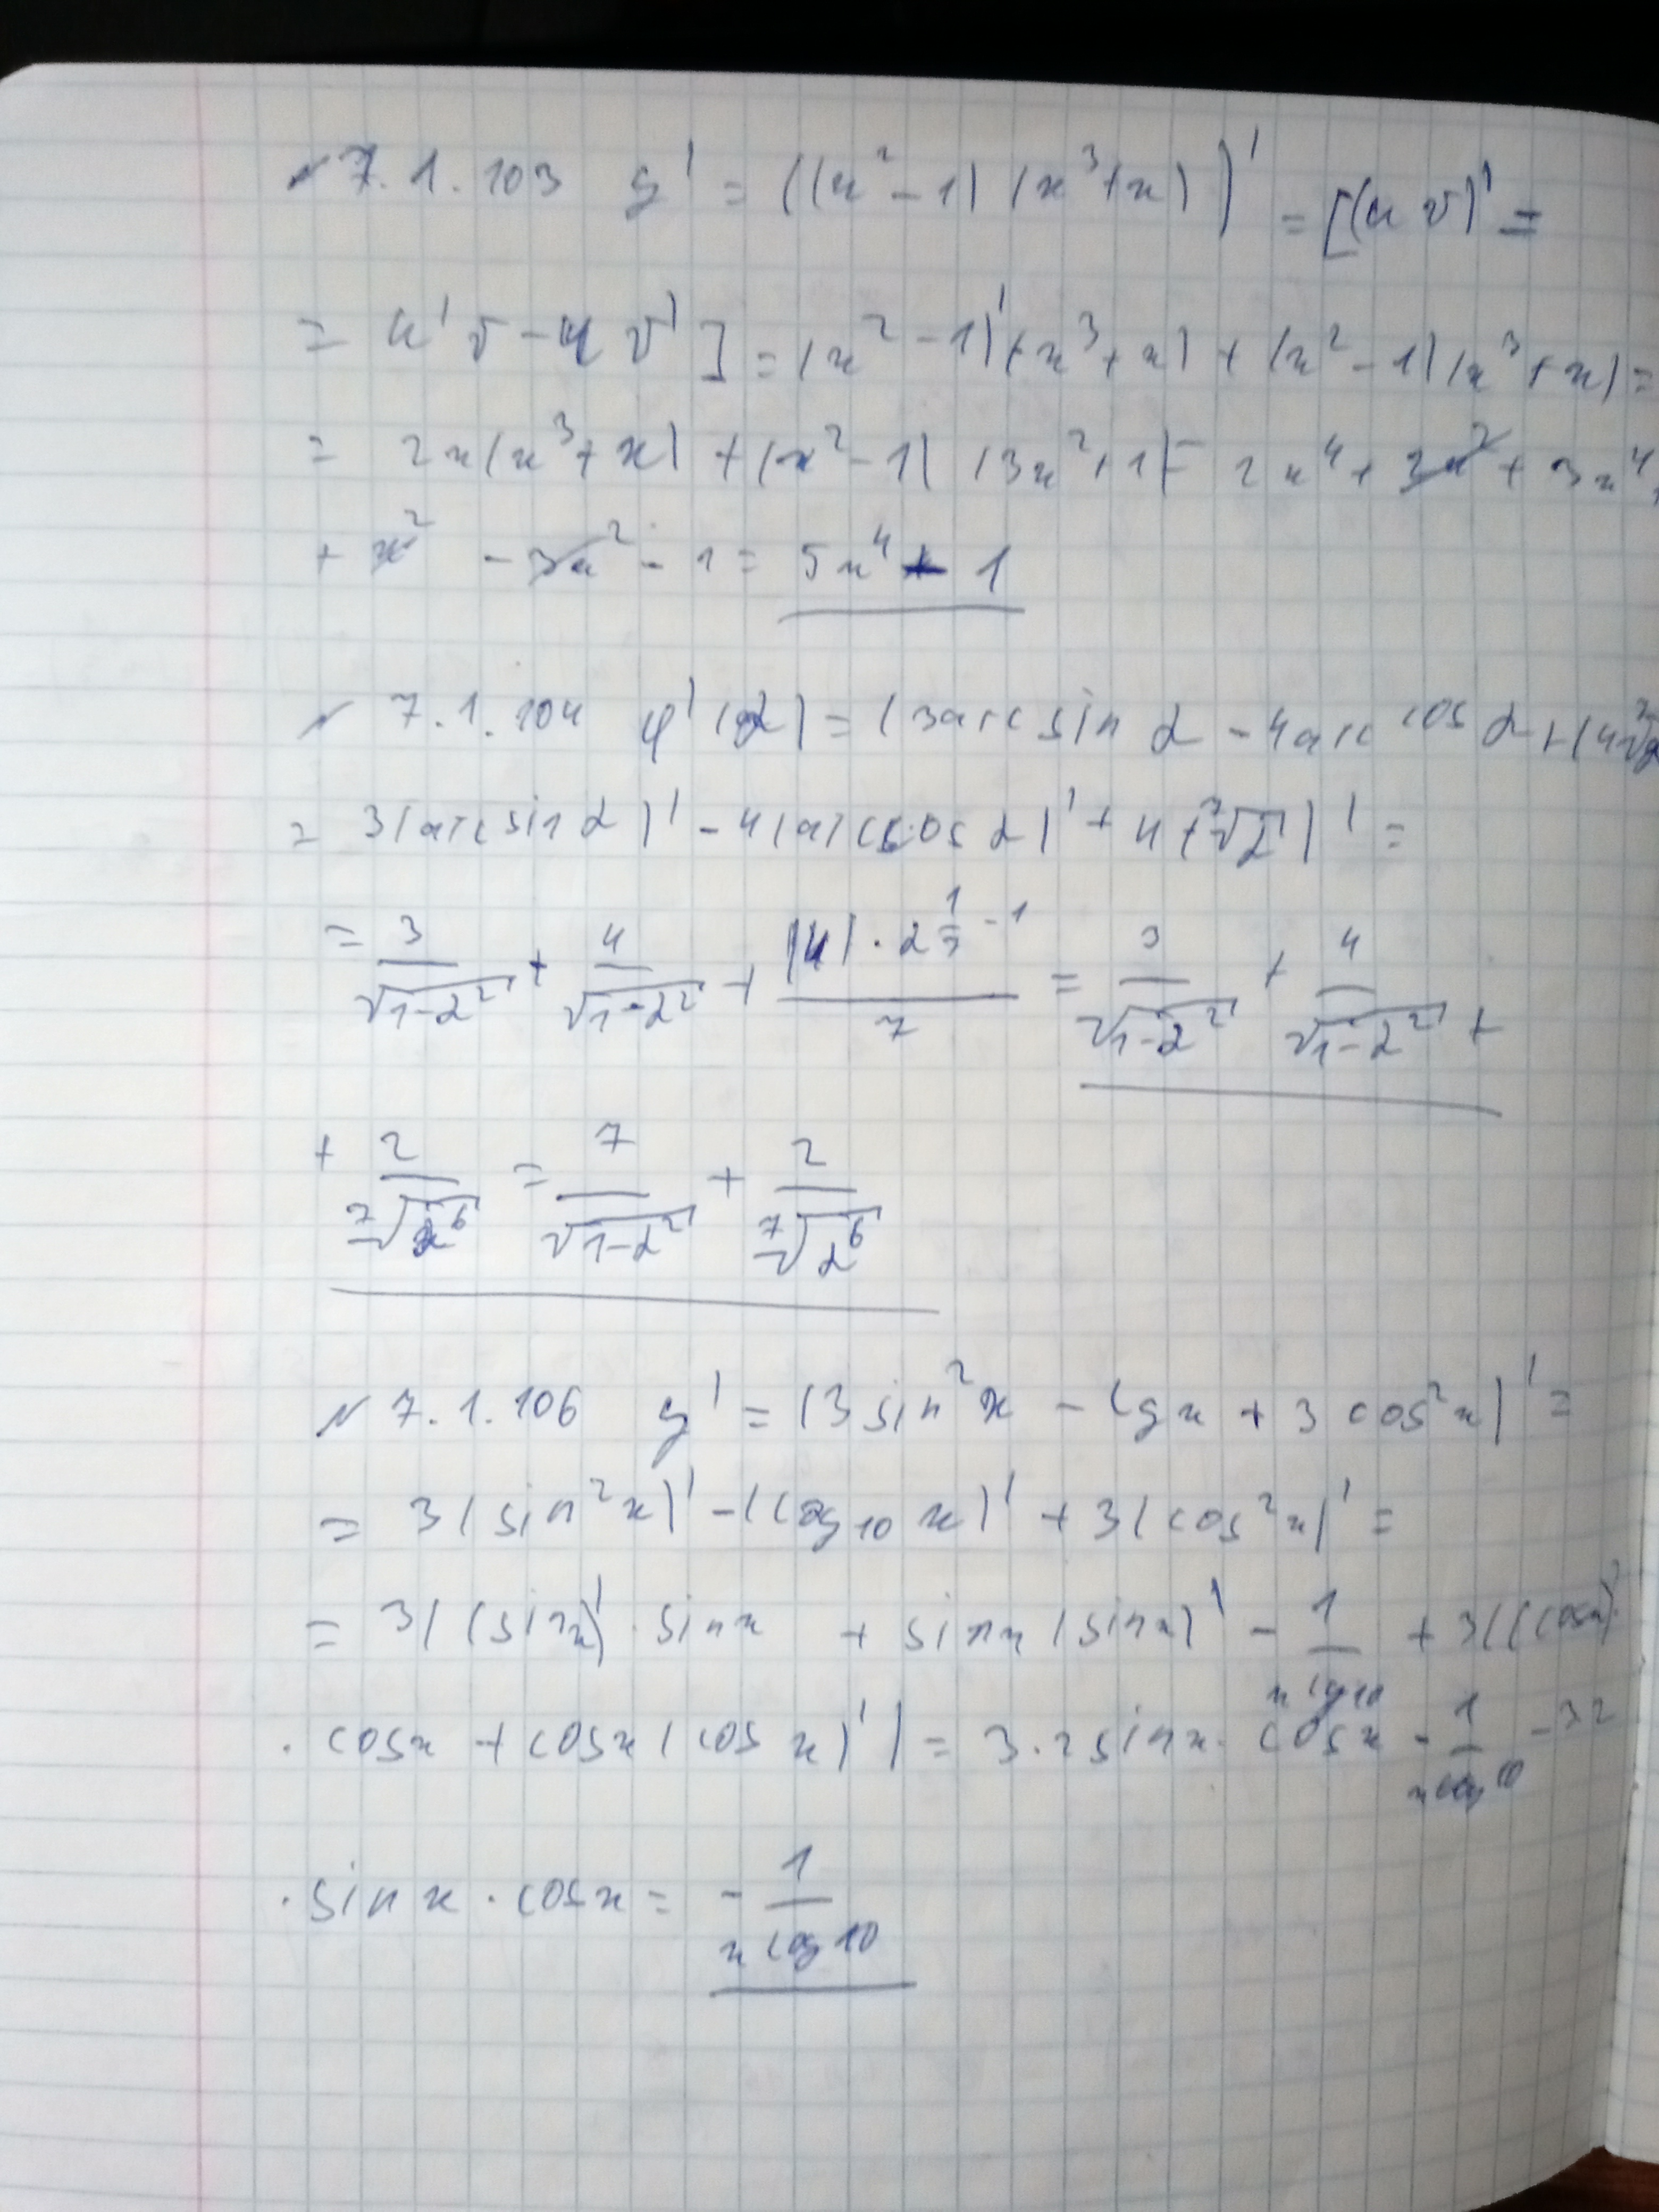 № 7.1.103 y' = ((x² - 1)(x³ + x))' = [(u v)' =
= u'v - u v'] = (x² - 1)'(x³ + x) + (x² - 1)(x³ + x) =
= 2x(x³ + x) + (x² - 1)(3x² + 1) = 2x⁴ + 2x² + 3x⁴ +
+ x² - 3x² - 1 = 5x⁴ - 1
№ 7.1.104 φ'(α) = (3arcsin α - 4arccos α + (4⁷√α
= 3(arcsin α)' - 4(arccos α)' + 4(⁷√α)' =
= 3/√(1-α²) + 4/√(1-α²) + · α^(1/7 - 1)/7 = 3/√(1-α²) + 4/√(1-α²) +
+ 2/⁷√(α⁶) = 7/√(1-α²) + 2/⁷√(α⁶)
№ 7.1.106 y' = (3 sin²x - lg x + 3 cos²x)' =
= 3(sin²x)' - (log₁₀ x)' + 3(cos²x)' =
= 3((sin x)' · sin x + sin x (sin x)' - 1/(x lg 10) + 3((cos x)'
· cos x + cos x (cos x)') = 3 · 2 sin x · cos x - 1/(x log 10) - 3·2
· sin x · cos x = - 1/(x log 10)